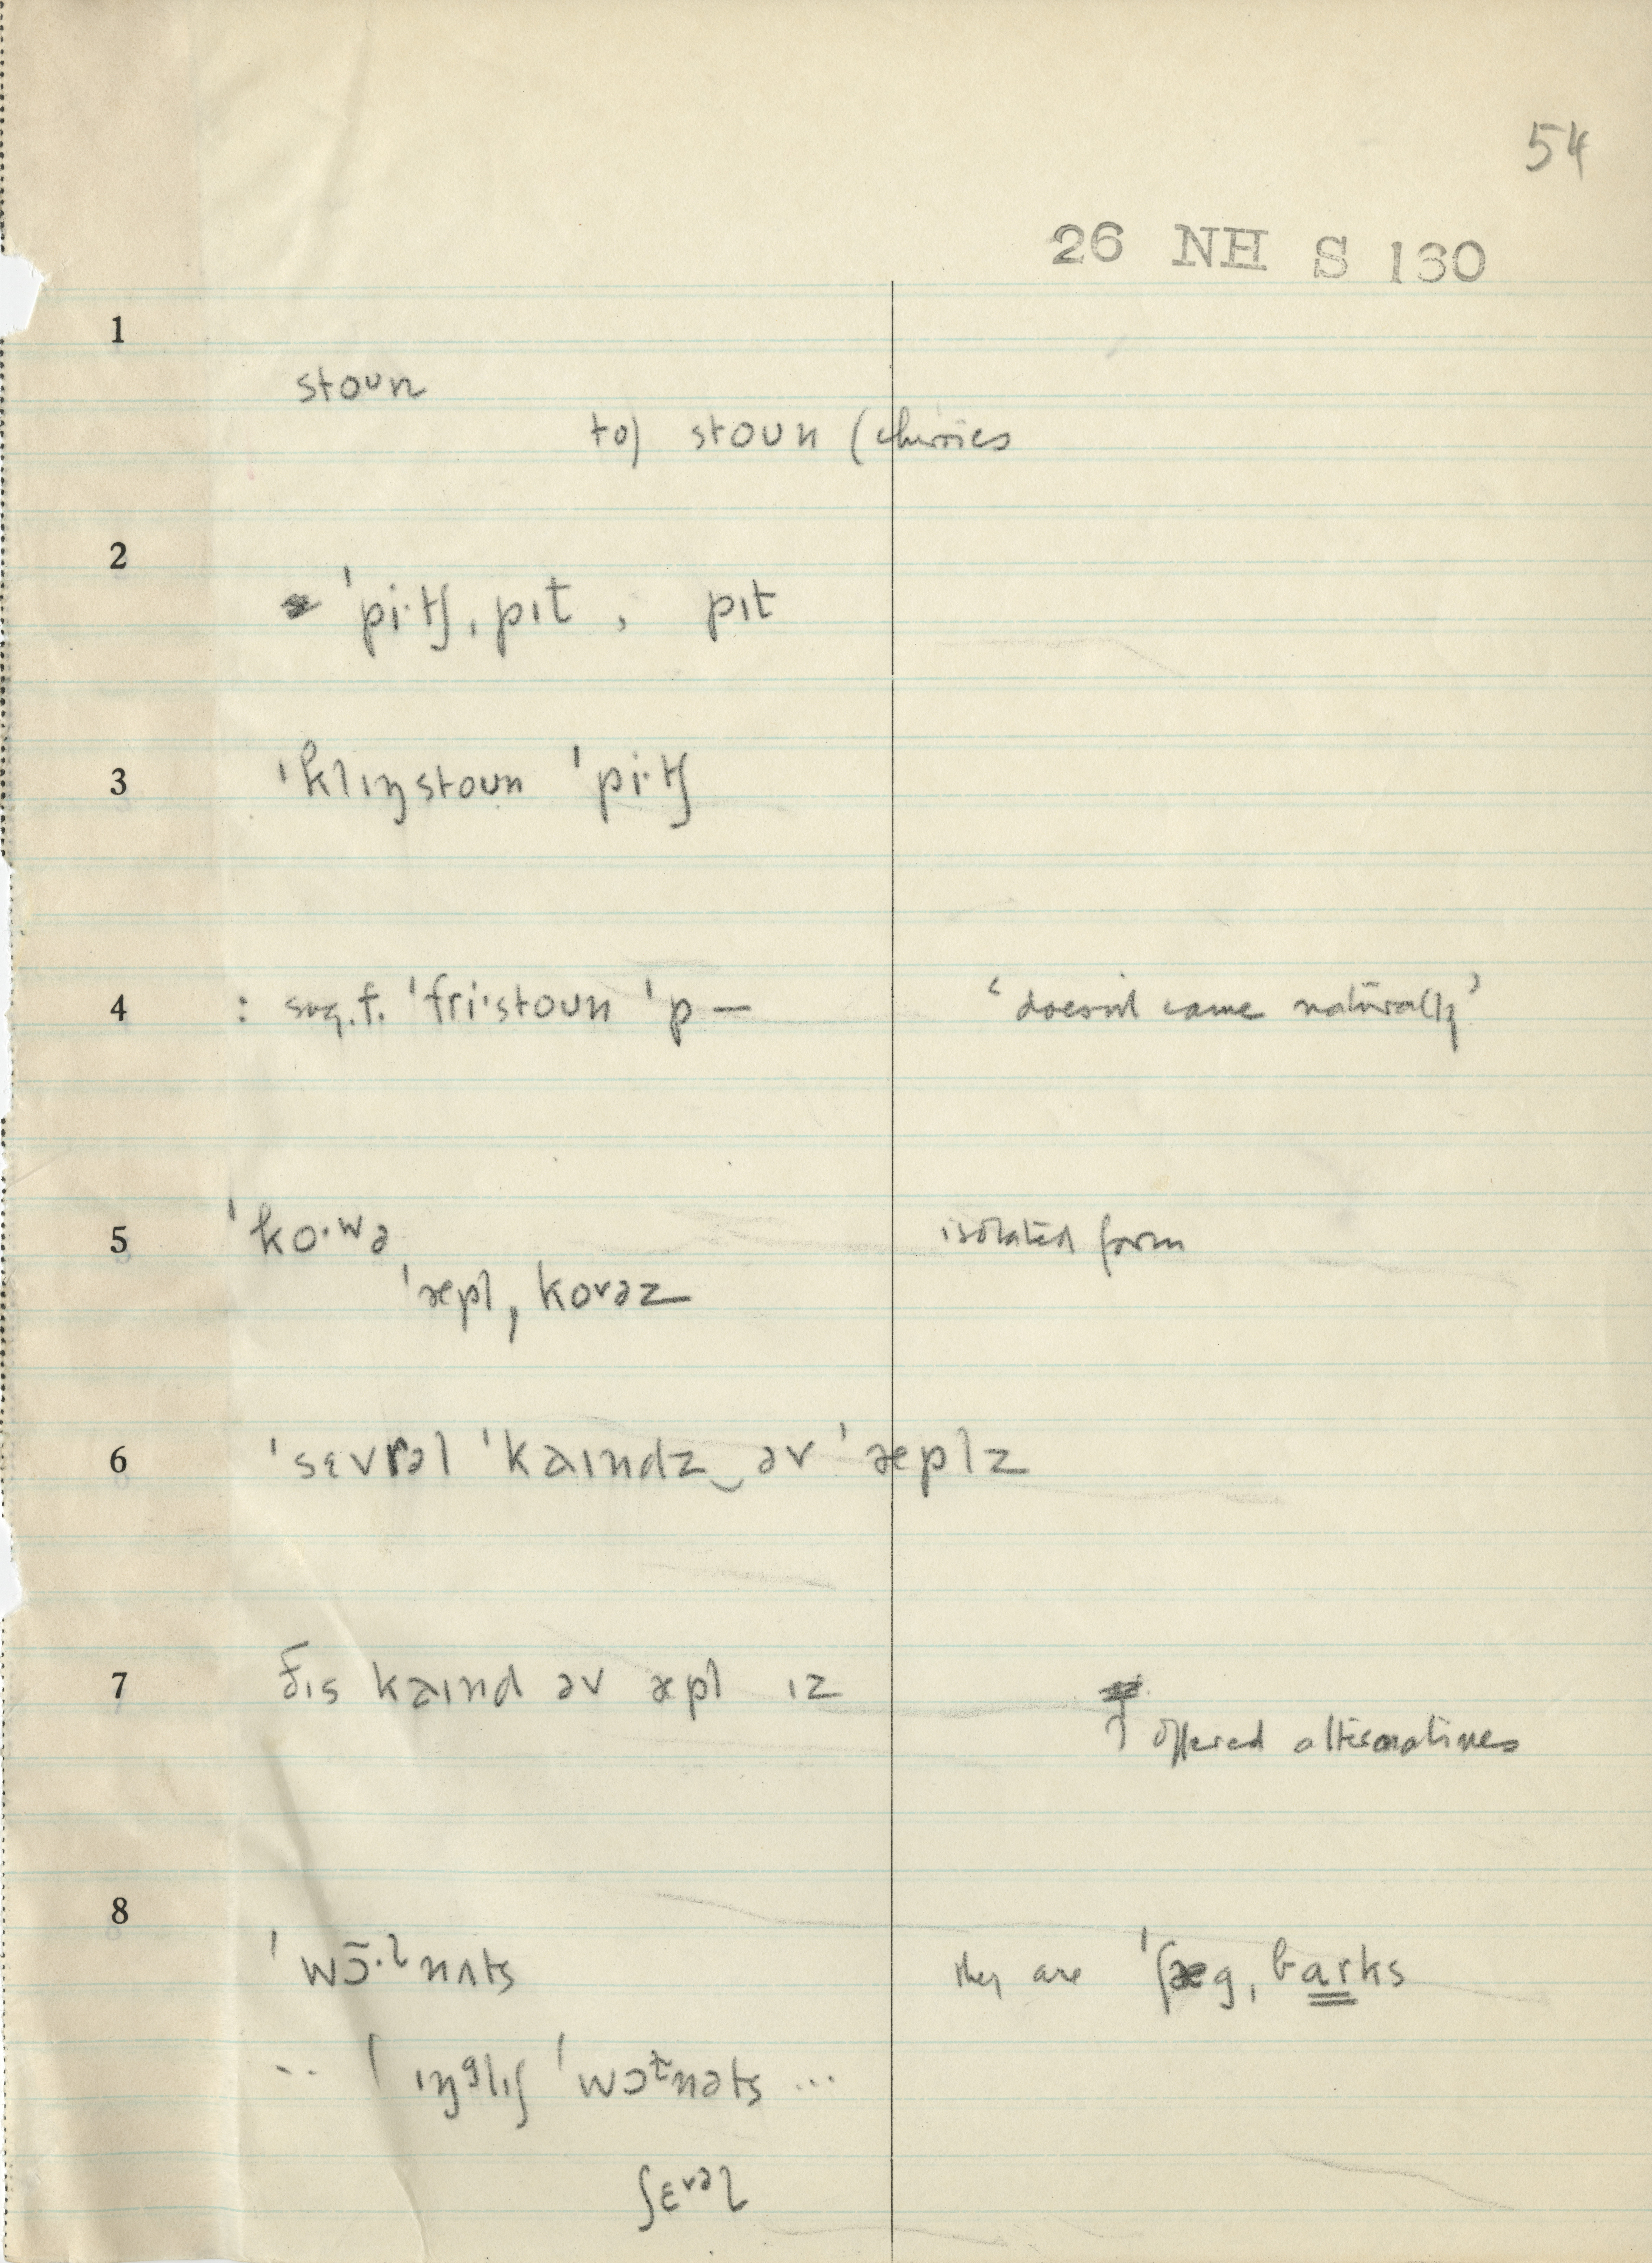 54
26 NH S 130
1
stoᴜn
to) stoᴜn (cherries
2
ˈpi·tʃ, pɪt , pɪt
3
ˈklɪŋstoun ˈpi·tʃ
4 : sug.f. ˈfri·stoun ˈp — ‘doesn't come naturally’
5 ˈko·ʷə isolated form
ˈæpl, korəz
6 ˈsɛvrəl ˈkaɪndz‿əv ˈæplz
7 ðɪs kaɪnd əv æpl ɪz
↑ offered alternatives
8
ˈwɔ̄·lnʌts they are ˈʃæg, barks
.. ˈɪŋᵍlɪʃ ˈwɔɫnəts ...